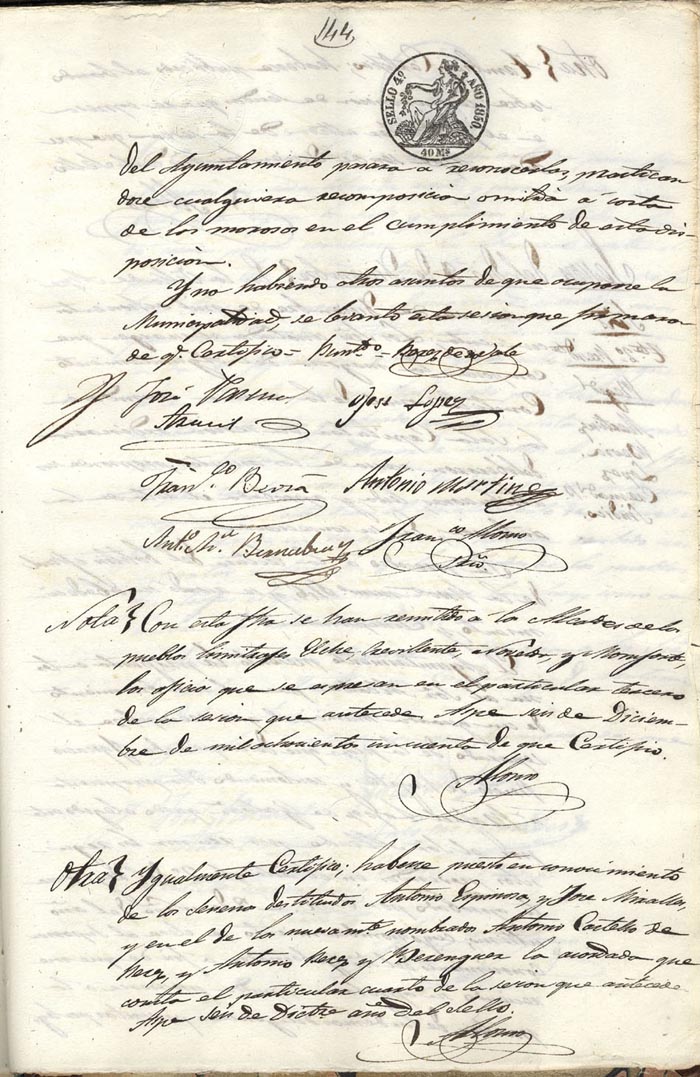 144
SELLO 4º AÑO 1850.
40 Ms
del Ayuntamiento pasara a reconocerlas, practican
dose cualquiera recomposicion omitida á costa
de los morosos en el cumplimiento de esta dis-
posicion.
Y no habiendo otros asuntos de que ocuparse la
Municipalidad, se levantó esta sesion que firmaron
de q.e Certifico =
José
José Lopez
Fran.co
Antonio Martinez
Ant.o M.a Bernabeu
Fran.co Alonso
Srio.
Nota} Con esta fha se han remitido a los Alcaldes de los
pueblos limitrofes Elche, Crevillente, Novelda, y Monforte,
los oficio que se espresan en el particular tercero
de la sesion que antecede Aspe seis de Diciem-
bre de mil ochocientos cincuenta de que Certifico.
Alonso
Otra} Ygualmente Certifico; haberse puesto en conocimiento
de los Serenos destituidos Antonio Espinosa, y Jose Miralles,
y en el de los nuevam.te nombrados Antonio Castello de
Perez, y Antonio Perez y Berenguer lo acordado que
consta el particular cuarto de la sesion que antecede
Aspe seis de Dicbre año del sello.
Alonso